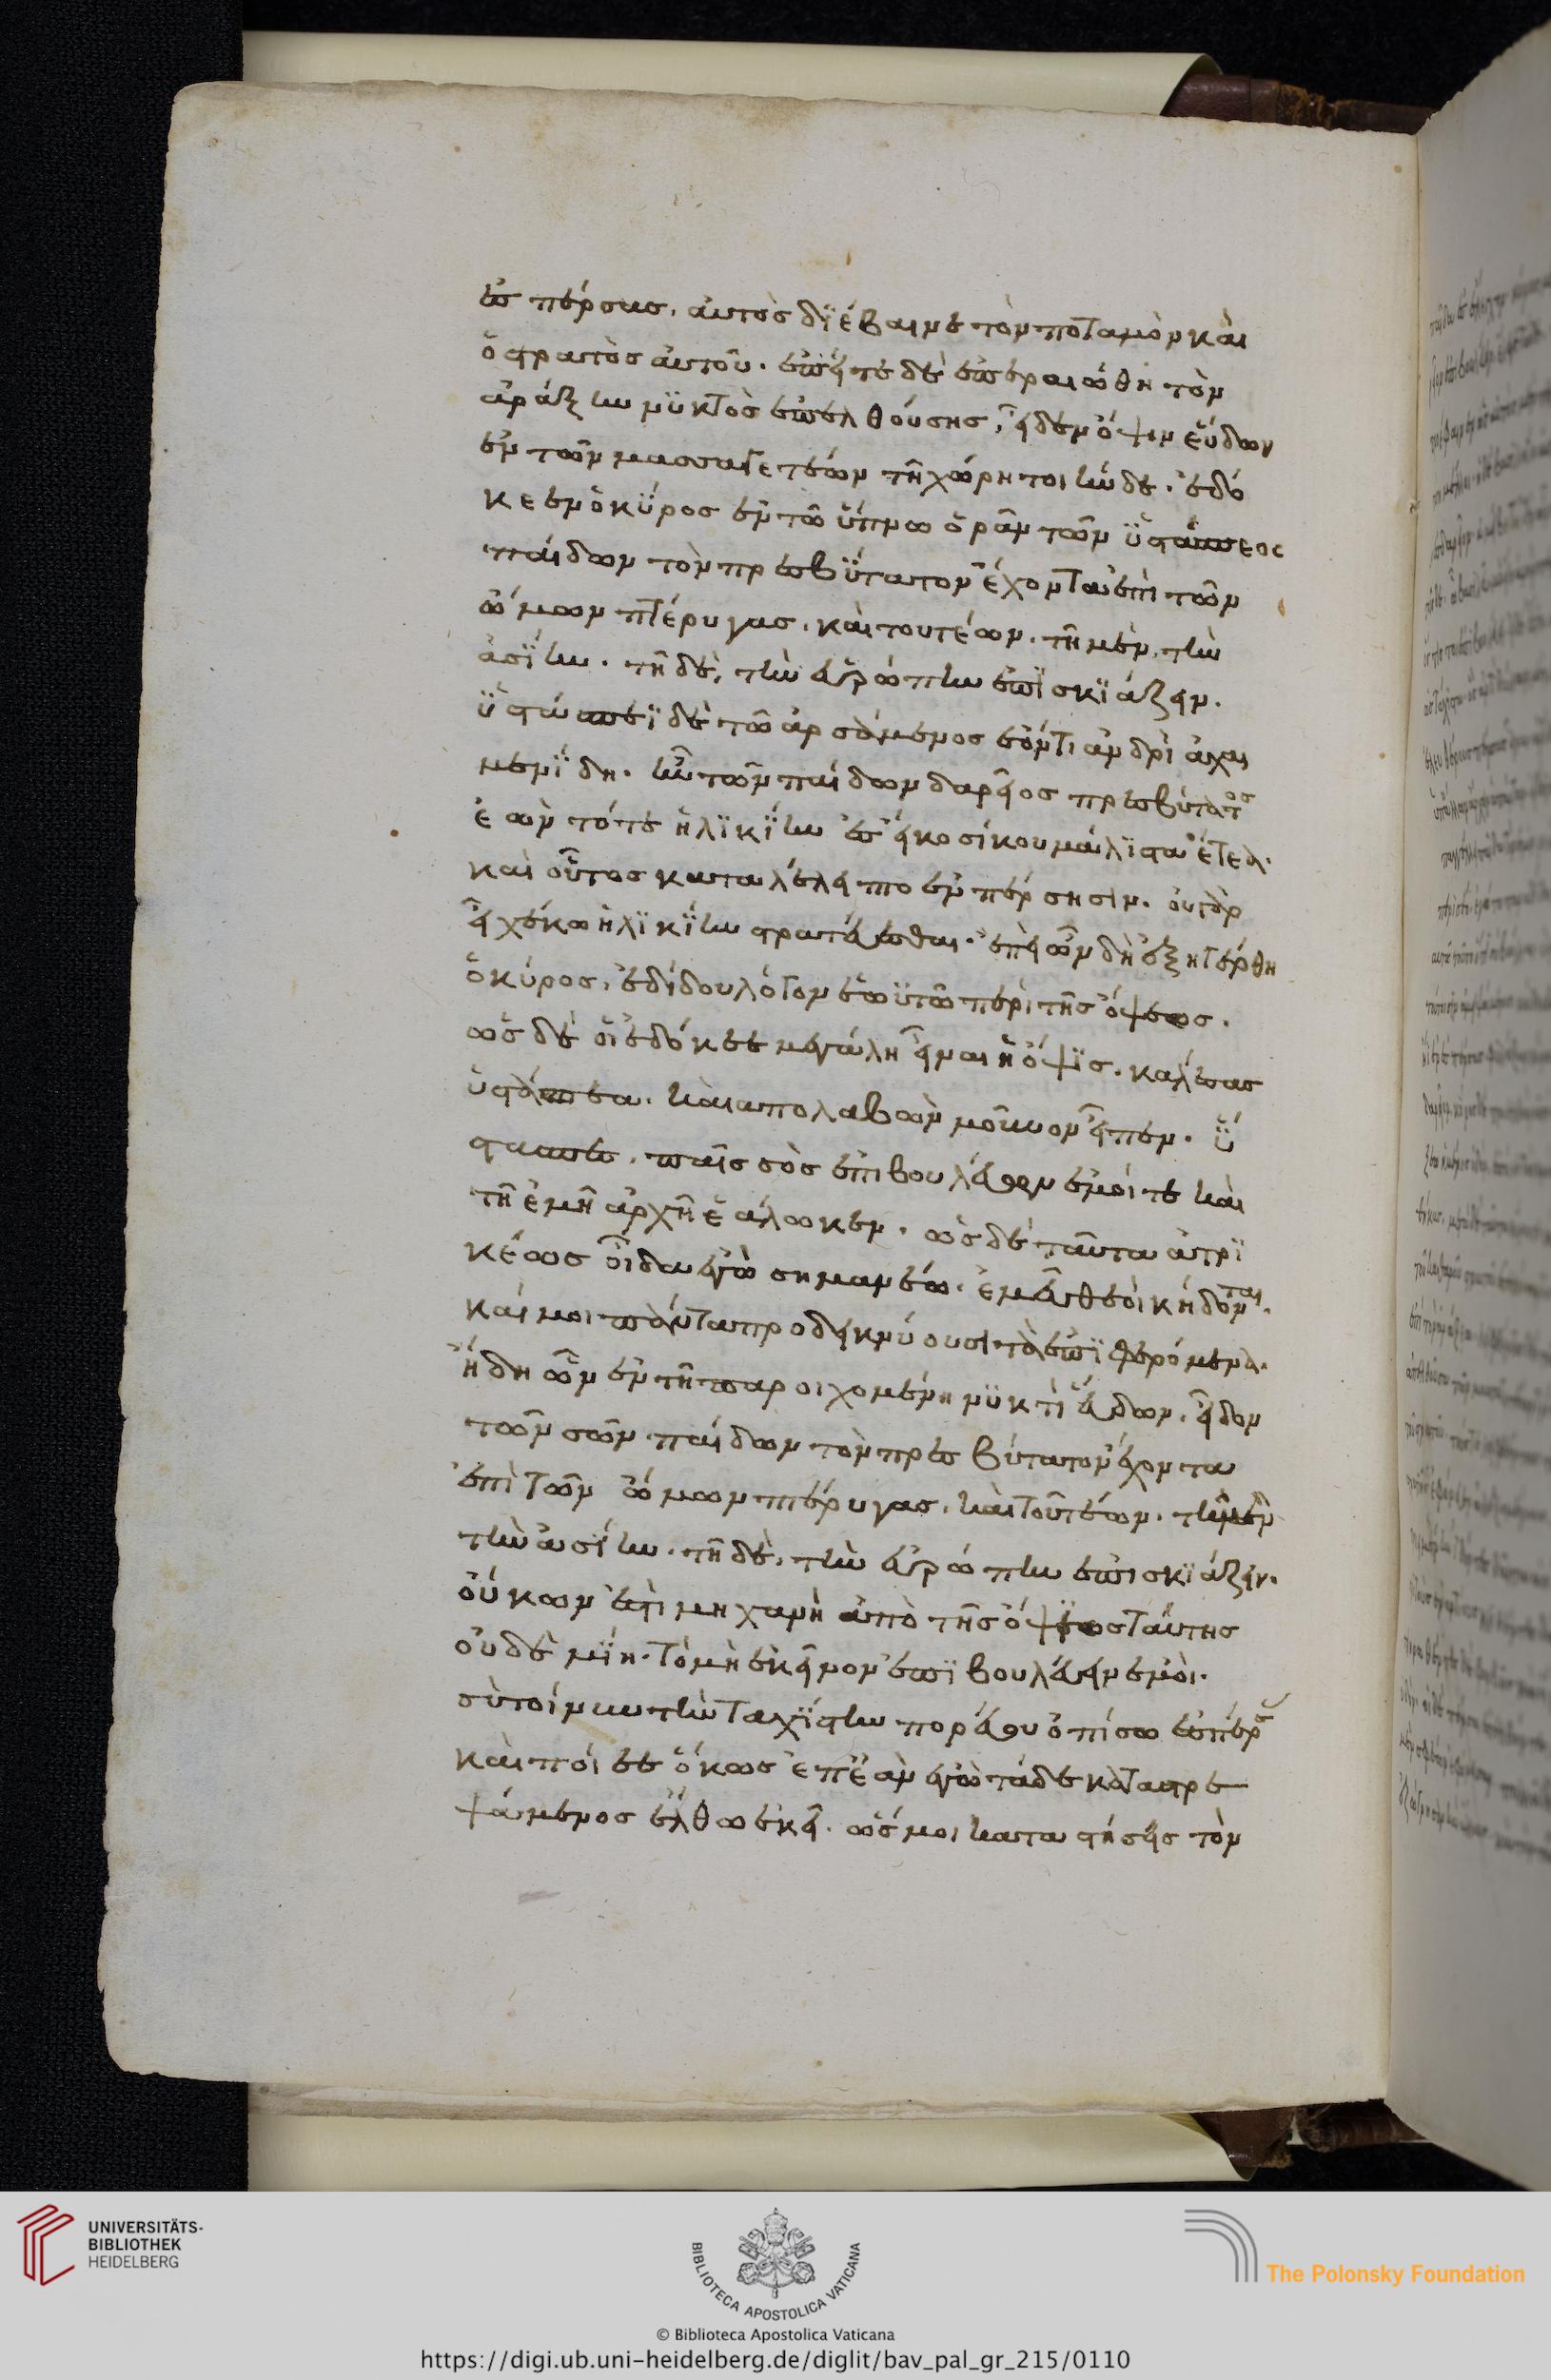 ἐς πέρσας. αὐτὸς διέβαινε τὸν ποταμὸν καὶ
ὁ στρατὸς αὐτοῦ. ἐπείτε δὲ ἐπεραιώθη τὸν
ἀράξην νυκτὸς ἐπελθούσης, εἶδεν ὄψιν εὕδων
ἐν τῶν μασσαγετέων τῆ χώρη τοιήνδε. ἐδό
κεεν ὁ κῦρος ἐν τῶ ὕπνω ὁρᾶν τῶν ὑστάσπεος
παίδων τὸν πρεσβύτατον ἔχοντα ἐπὶ τῶν
ὤμων πτέρυγας. καὶ τουτέων. τῆ μὲν, τὴν
ἀσίην. τῆ δὲ, τὴν εὐρώπην ἐπισκιάζειν.
ὑστάσπεϊ δὲ τῶ ἀρσάμενος ἐόντι ἀνδρὶ ἀχαι
μενίδη. ἦν τῶν παίδων δαρεῖος πρεσβύτατος
ἐὼν τότε ἡλικίην ἐς εἴκοσί κου μάλιστα ἔτεα.
καὶ οὗτος καταλέλειπτο ἐν πέρσησιν. οὐ γὰρ
εἶχέ κω ἡλικίην στρατεύεσθαι. ἐπεὶ ὦν δὴ ἐξηγέρθη
ὁ κύρος, ἐδίδου λόγον ἑωϋτῶ περὶ τῆς ὄψεως.
ὡς δέ οἱ ἐδόκεε μεγάλη εἶναι ἡ ὄψις. καλέσας
ὑστάσπεα. καὶ ἀπολαβὼν μοῦνον εἶπεν. ὕ
στασπες, παῖς σὸς ἐπιβουλεύων ἐμοί τε καὶ
τῆ ἐμῆ ἀρχῆ ἑάλωκεν. ὡς δὲ ταῦτα ἀτρε
κέως οἶδα ἐγὼ σημανέω. ἐμεῦ θεοὶ κήδονται.
καί μοι πάντα προδεικνύουσι τὰ ἐπιφερόμενα.
ἤδη ὦν ἐν τῆ παροιχομένη νυκτὶ εὕδων, εἶδον
τῶν σῶν παίδων τὸν πρεσβύτατον ἔχοντα
ἐπὶ τῶν ὤμων πτέρυγας. καὶ τουτέων. τῆ μὲν
τὴν ἀσίην. τῆ δὲ, τὴν εὐρώπην ἐπισκιάζειν.
οὔκων ἐστι μηχανὴ ἀπὸ τῆς ὄψεως ταύτης
οὐδεμίη. τὸ μὴ ἐκεῖνον ἐπιβουλεύειν ἐμοί.
σὺ τοίνυν τὴν ταχίστην πορεύου ὀπίσω ἐς πέρσας
καὶ ποίεε ὅκως ἐπεὰν ἐγὼ τάδε καταστρε
ψάμενος ἔλθω ἐκεῖ. ὥς μοι καταστήσεις τὸν
UNIVERSITÄTS-
BIBLIOTHEK
HEIDELBERG
BIBLIOTECA APOSTOLICA VATICANA
The Polonsky Foundation
© Biblioteca Apostolica Vaticana
https://digi.ub.uni-heidelberg.de/diglit/bav_pal_gr_215/0110